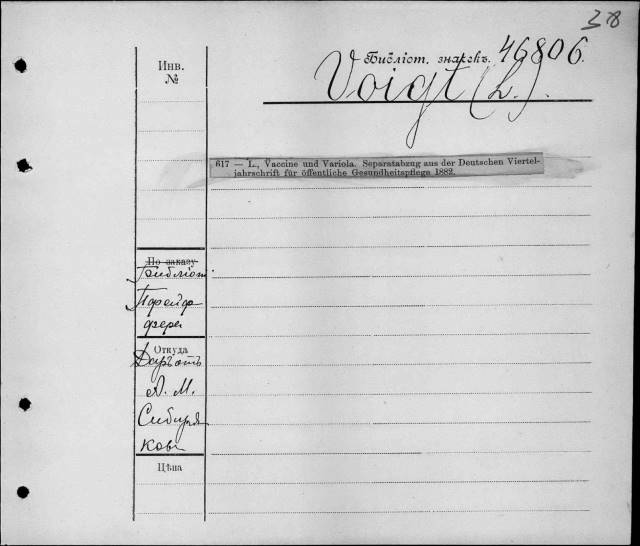 378
Библіот. знакъ. 46806.
Инв.
№
Voigt (L.).
617 — L., Vaccine und Variola. Separatabzug aus der Deutschen Viertel-
jahrschrift für öffentliche Gesundheitspflege 1882.
По заказу
Библіот.
Пфейф
фера
Откуда
Даръ отъ
А. М.
Сибиря
кова
Цѣна